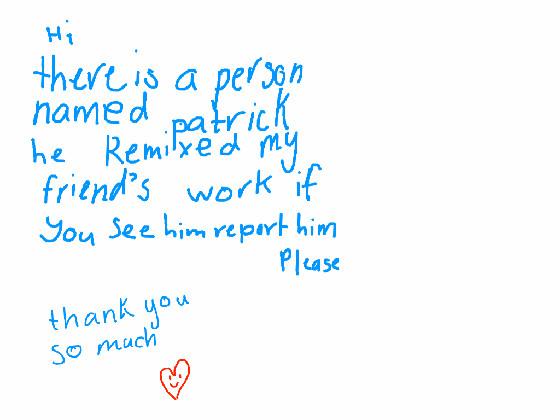 Hi
there is a person
named patrick
he Remixed my
friend's work if
you see him report him
Please
thank you
so much